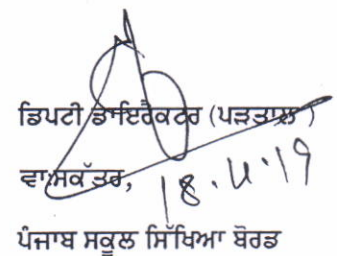 ਡਿਪਟੀ ਡਾਇਰੈਕਟਰ (ਪੜਤਾਲ)
ਵਾ:ਸਕੱਤਰ,
18.4.19
ਪੰਜਾਬ ਸਕੂਲ ਸਿੱਖਿਆ ਬੋਰਡ